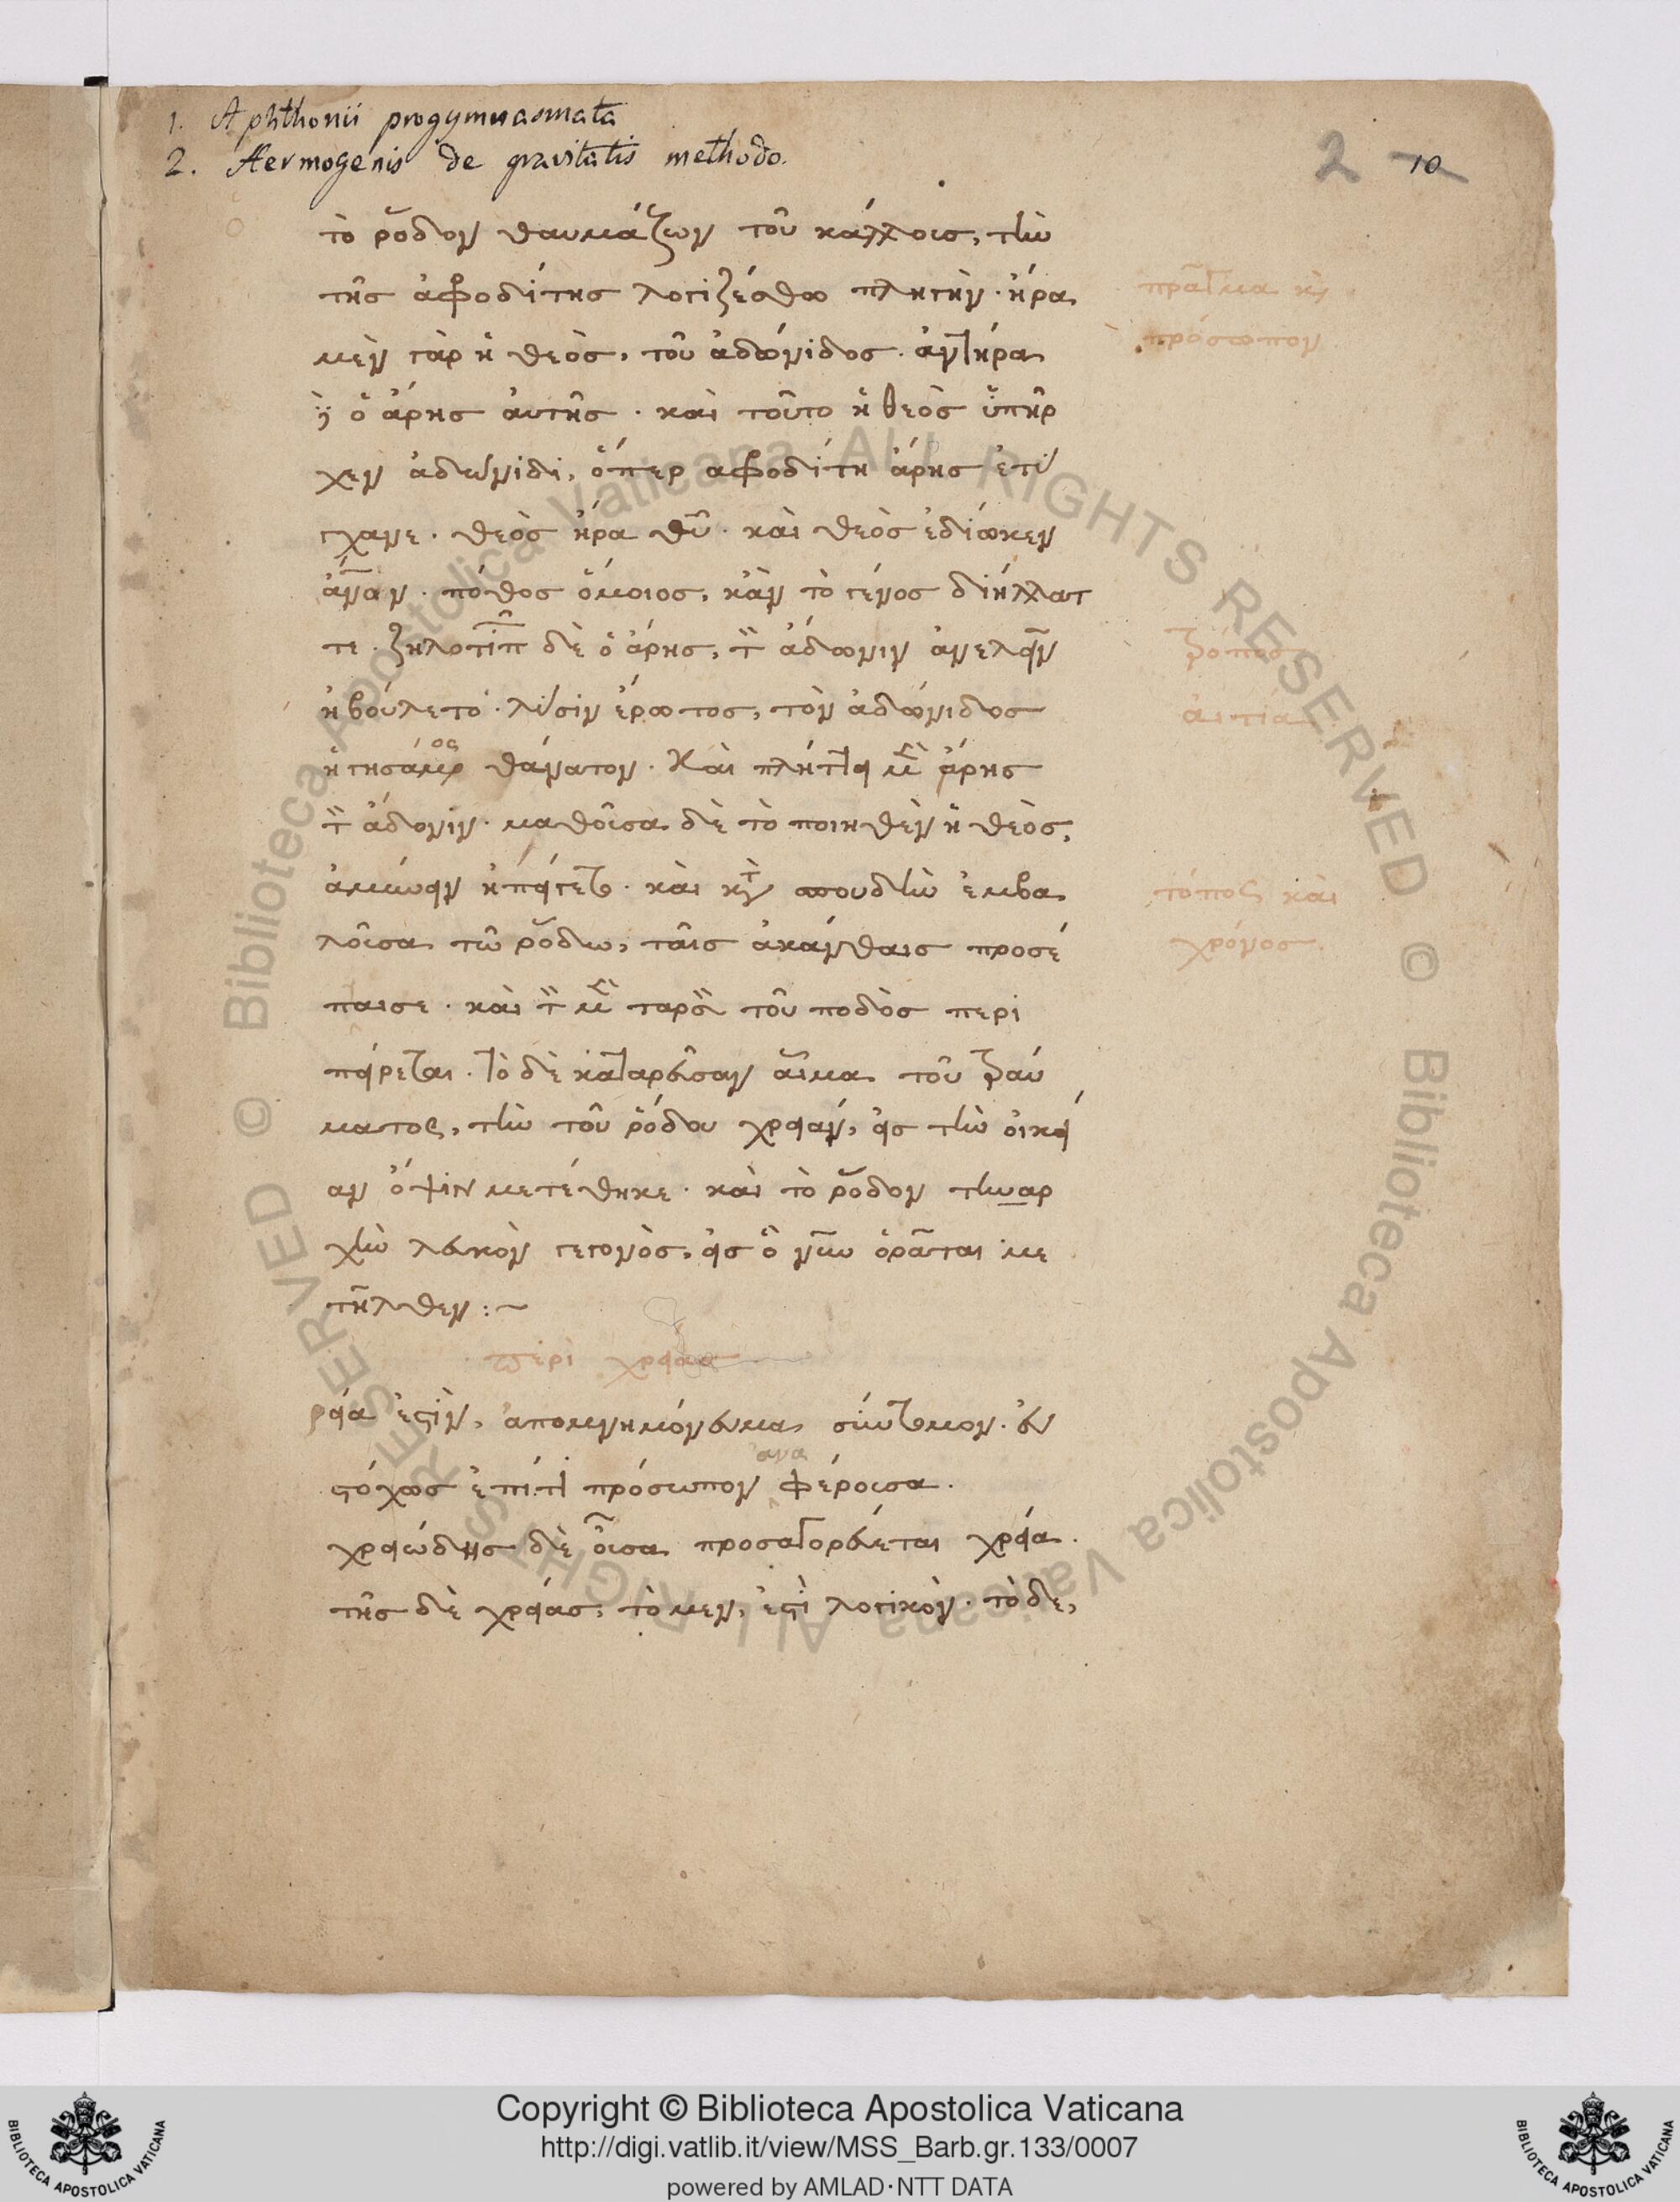 1. Aphthonii progymnasmata
2. Hermogenis de gravitatis methodo.
2 10
τὸ ῥόδον θαυμάζων τοῦ κάλλους, τὴν
τῆς ἀφροδίτης λογιζέσθω πληγήν· ἤρα
πρᾶγμα καὶ
μὲν γὰρ ἡ θεὸς, τοῦ ἀδώνιδος· ἀντήρα
πρόσωπον
δὲ ὁ ἄρης αὐτῆς· καὶ τοῦτο ἡ θεὸς ὑπῆρ
χεν ἀδώνιδι, ὅπερ αφροδίτη ἄρης ἐτύ
γχανε· θεὸς ἤρα θῦ· καὶ θεὸς ἐδίωκεν
ἄνον· πόθος ὅμοιος, κἂν τὸ γένος διήλλατ
τε· ζηλοτυπῶν δὲ ὁ ἄρης, τὸν ἄδωνιν ἀνελεῖν
τρόπος
ἠβούλετο· λύσιν ἔρωτος, τὸν ἀδώνιδος
αἰτία
ἡγησάμενος θάνατον· Καὶ πλήττει μὲν ἄρης
τὸν ἄδονιν· μαθοῦσα δὲ τὸ ποιηθὲν ἡ θεὸς,
ἀμύνειν ἠπείγετο· καὶ κατὰ σπουδὴν ἐμβα
τόπος καὶ
λοῦσα τῶ ῥόδω, ταῖς ἀκάνθαις προσέ
χρόνος.
παισε· καὶ τὸν μὲν ταρσὸν τοῦ ποδὸς περι
πείρεται. Τὸ δὲ καταρεῦσαν αἷμα τοῦ τραύ
ματος, τὴν τοῦ ῥόδου χρειάν, εἰς τὴν οἰκεί
αν ὄψιν μετέθηκε· καὶ τὸ ῥόδον τὴν αρ
χὴν λευκὸν γεγονὸς, εἰς ὃ νῦν ὁρᾶται με
τῆλθεν :~
περὶ χρείας
ρεία ἐστὶν, ἀπομνημόνευμα σύντομον. εὐ
στόχως ἐπί τι πρόσωπον ανα φέρουσα.
χρειώδης δὲ οὖσα προσαγορεύεται χρεία.
τῆς δὲ χρείας, τὸ μεν, ἐστὶ λογικὸν· τὸ δε,
Copyright © Biblioteca Apostolica Vaticana
http://digi.vatlib.it/view/MSS_Barb.gr.133/0007
powered by AMLAD·NTT DATA
BIBLIOTECA APOSTOLICA VATICANA
BIBLIOTECA APOSTOLICA VATICANA
© Biblioteca Apostolica Vaticana ALL RIGHTS RESERVED © Biblioteca Apostolica Vaticana ALL RIGHTS RESERVED